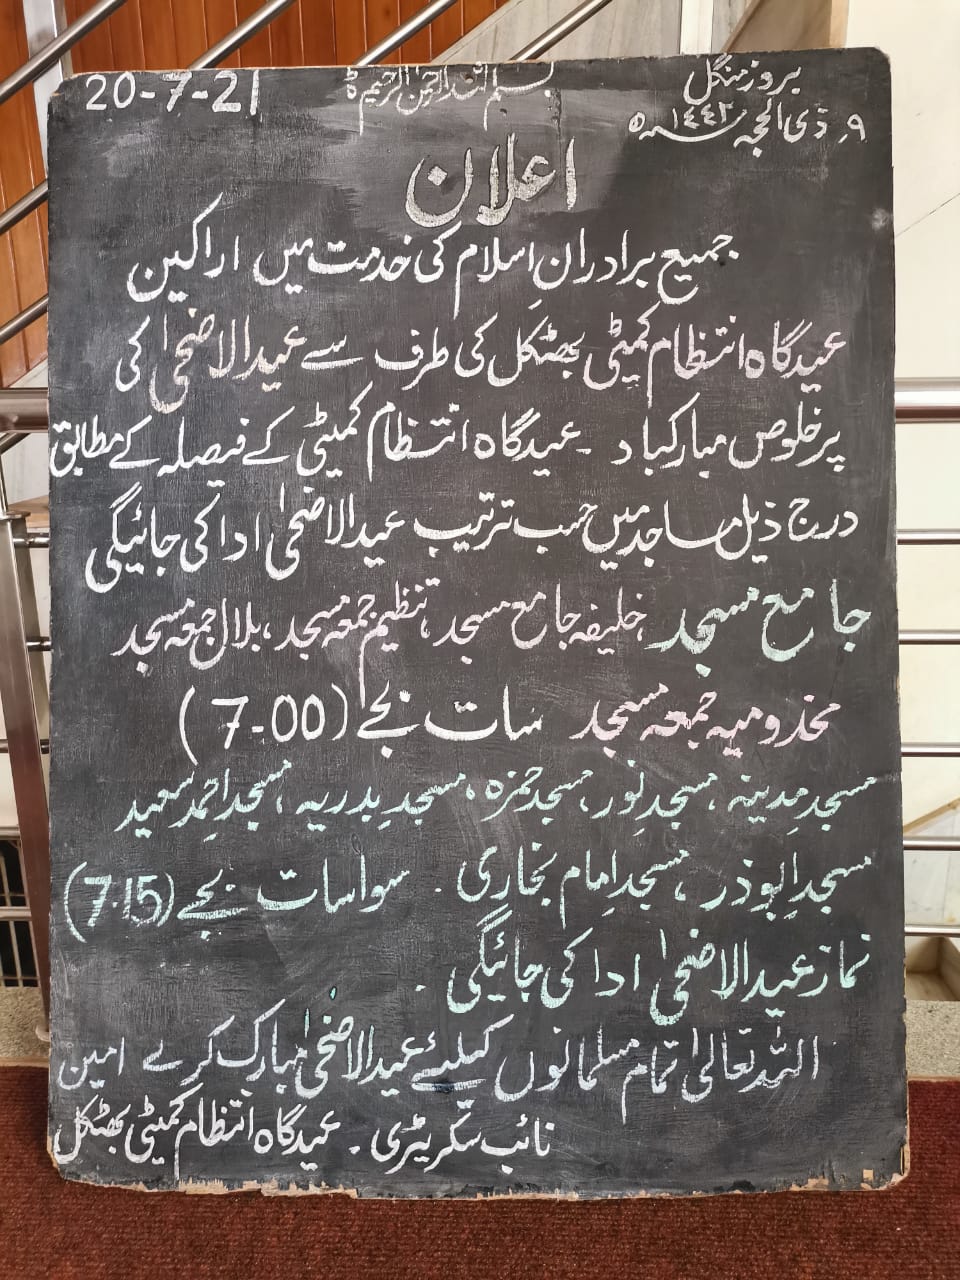 بروز منگل
۹؍ ذی الحجہ سنہ ۱۴۴۲ھ
بسم اللہ الرحمٰن الرحیم
20-7-21
اعلان
جمیع برادرانِ اسلام کی خدمت میں اراکین
عیدگاہ انتظام کمیٹی بھٹکل کی طرف سے عیدالاضحیٰ کی
پرخلوص مبارکباد ۔ عیدگاہ انتظام کمیٹی کے فیصلہ کے مطابق
درج ذیل مساجد میں حسب ترتیب عیدالاضحیٰ ادا کی جائیگی
جامع مسجد، خلیفہ جامع مسجد، تنظیم جمعہ مسجد، بلال جمعہ مسجد
مخدومیہ جمعہ مسجد سات بجے (7-00)
مسجدِ مدینہ، مسجدِ نور، مسجد حمزہ، مسجدِ بدریہ، مسجدِ احمد سعید
مسجدِ ابوذر، مسجدِ امام بخاری . سواسات بجے (7.15)
نماز عیدالاضحیٰ ادا کی جائیگی .
اللہ تعالیٰ تمام مسلمانوں کیلئے عیدالاضحیٰ مبارک کرے امین
نائب سکریٹری . عیدگاہ انتظام کمیٹی بھٹکل